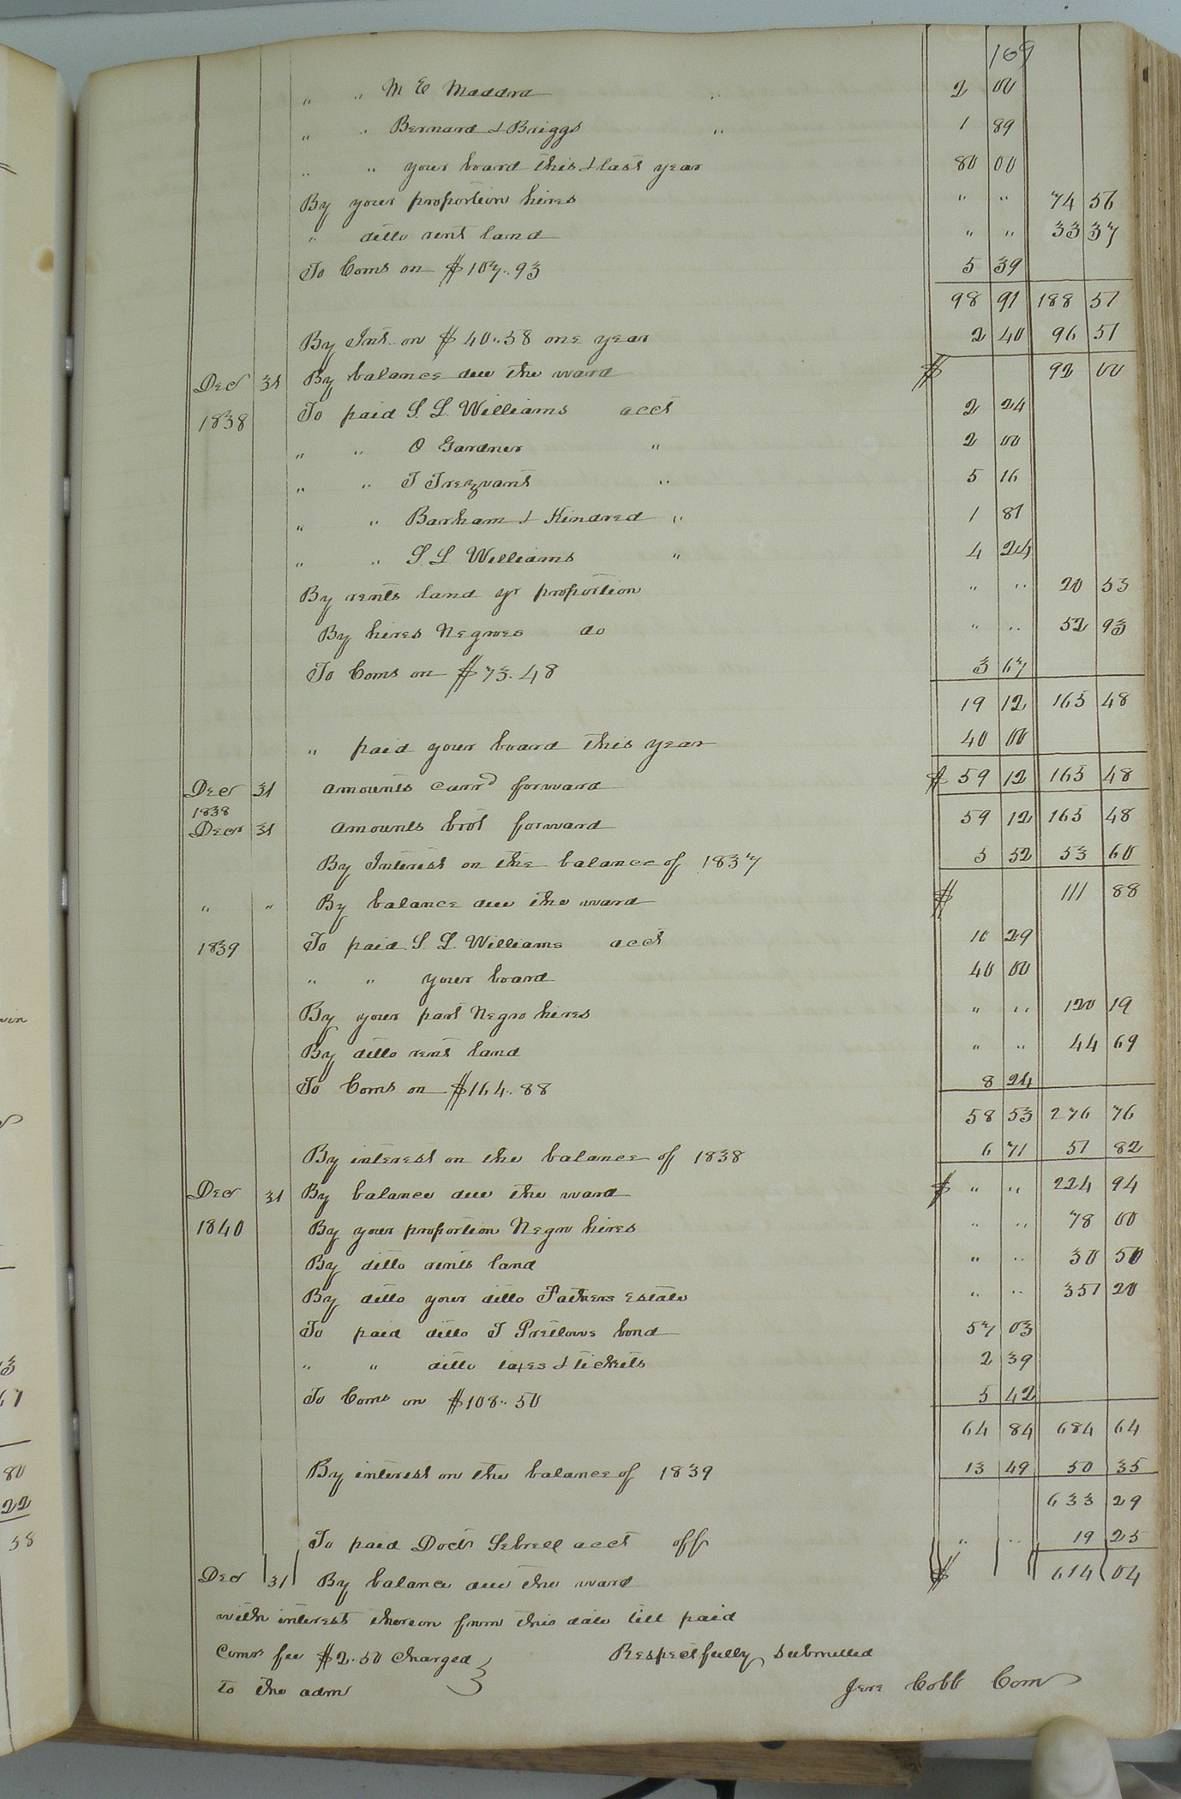 169
" " M E Maddra " 2 00
" " Bernard & Briggs " 1 89
" " your board this & last year 80 00
By your proportion hires " " 74 56
" ditto rent land " " 33 37
To Coms on $107..93 5 39
98 91 188 51
By Int. on $40..58 one year 2 40 96 51
Decr 31 By balance due the ward $ 92 00
1838 To paid S. L. Williams acct 2 24
" " O Gardner " 2 00
" " T Trezvant " 5 16
" " Barham & Kindred " 1 81
" " S. L. Williams " 4 24
By rents land yr proportion " " 20 55
By hires Negroes do " " 52 93
To Coms on $73.48 3 67
19 12 165 48
" paid your board this year 40 00
Decr 31 amounts carrd forward $ 59 12 165 48
1838
Decr 31 amounts brot forward 59 12 165 48
By Interest on the balance of 1837 5 52 53 60
" " By balance due the ward $ 111 88
1839 To paid S. L. Williams acct 10 29
" " your board 40 00
By your part Negro hires " " 120 19
By ditto rent land " " 44 69
To Coms on $164..88 8 24
58 53 276 76
By interest on the balance of 1838 6 71 51 82
Decr 31 By balance due the ward $ " " 224 94
1840 By your proportion Negro hires " " 78 00
By ditto rents land " " 30 50
By ditto your ditto Fathers estate " " 351 20
To paid ditto T Pretlows bond 57 03
" " ditto taxes & tickets 2 39
To Coms on $108..50 5 42
64 84 684 64
By interest on the balance of 1839 13 49 50 35
633 29
To paid Doctr Sebrell acct off " " 19 25
Decr 31 By balance due the ward $ 614 04
with interest thereon from this date till paid
Comr fee $2.50 charged Respectfully submitted
to the adm Jere Cobb Com